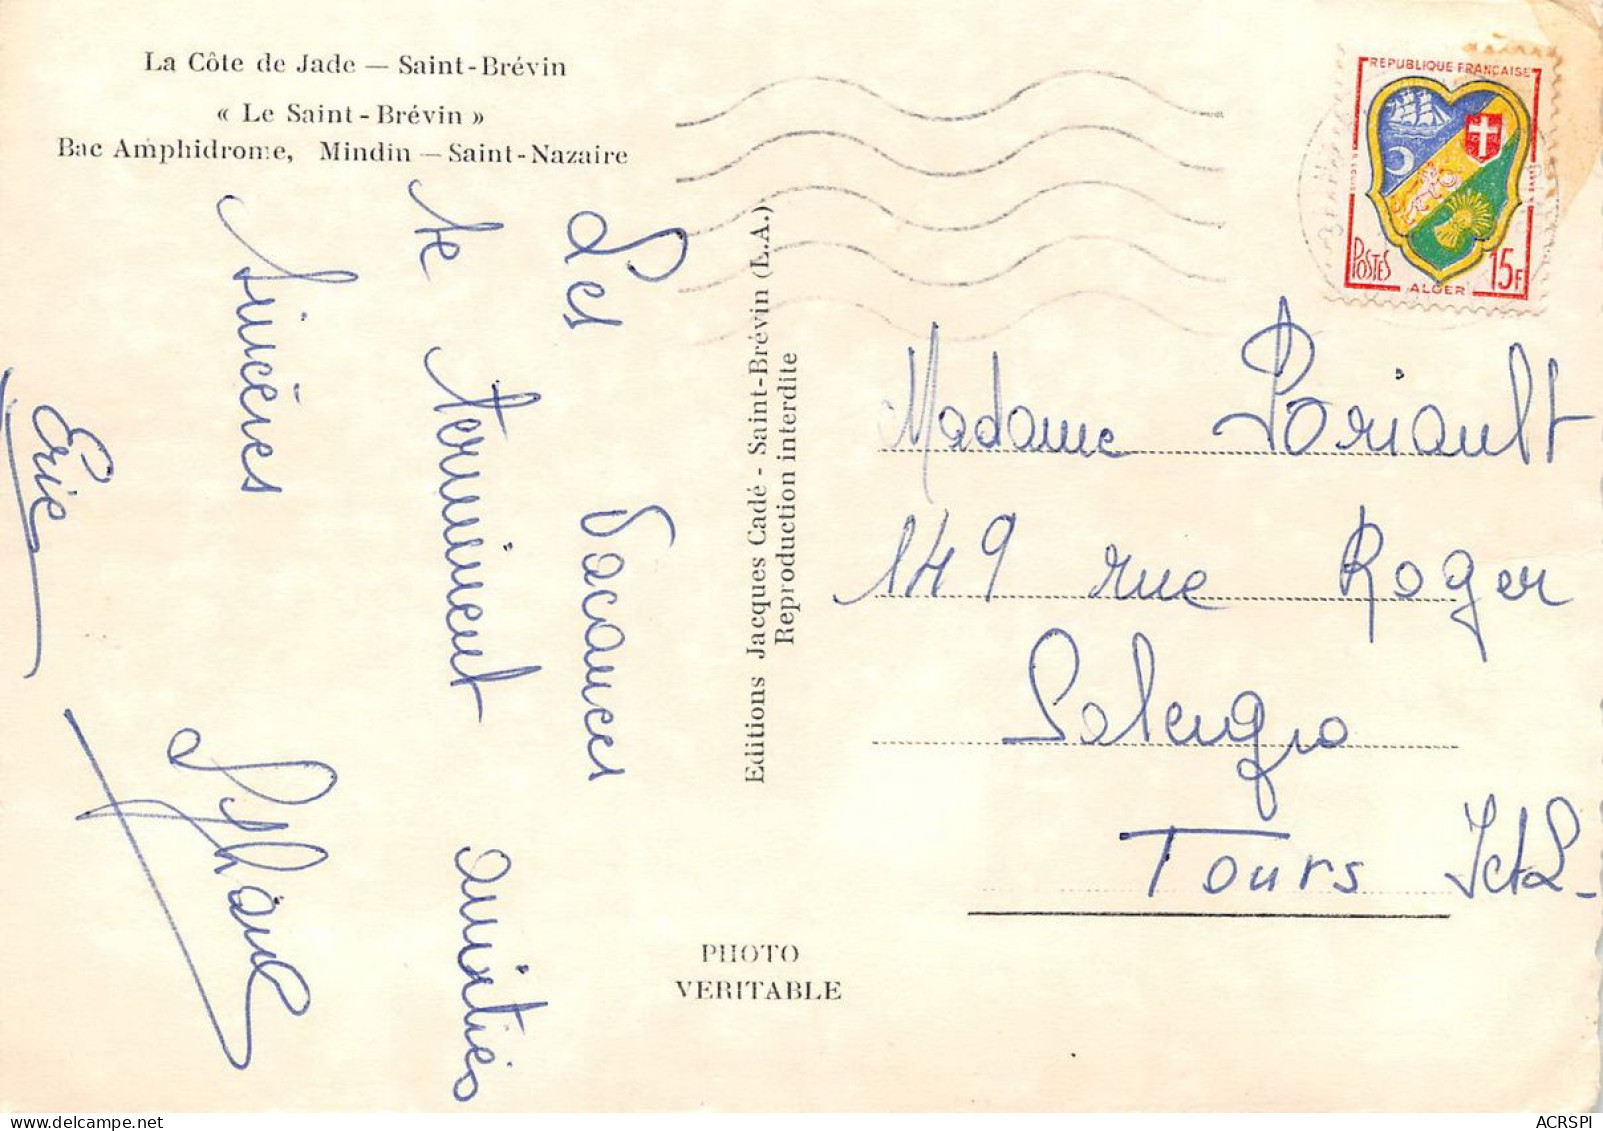 La Côte de Jade — Saint-Brévin
« Le Saint-Brévin »
Bac Amphidrome, Mindin — Saint-Nazaire
Les vacances
se terminent amitiés
sincères
Eric
Editions Jacques Cadé - Saint-Brévin (L.A.)
Reproduction interdite
PHOTO
VERITABLE
REPUBLIQUE FRANÇAISE
POSTES
15F
ALGER
Madame Poriault
149 rue Roger
Salengro
Tours I et L-
ACRSPI